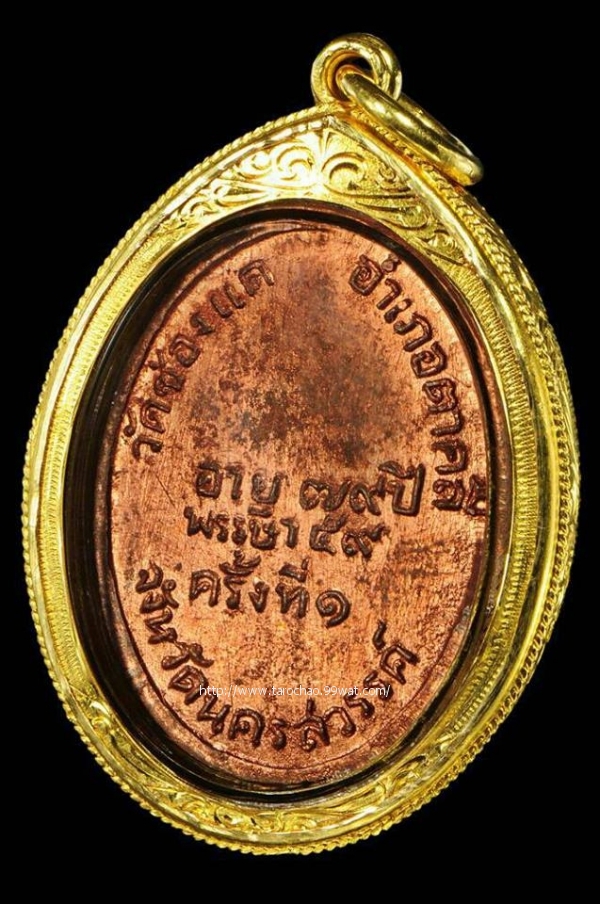 วัดช่องแค
อำเภอตาคลี
อายุ ๗๙ ปี
พรรษา ๕๙
ครั้งที่ ๑
จังหวัดนครสวรรค์
http://www.tarochao.99wat.com/